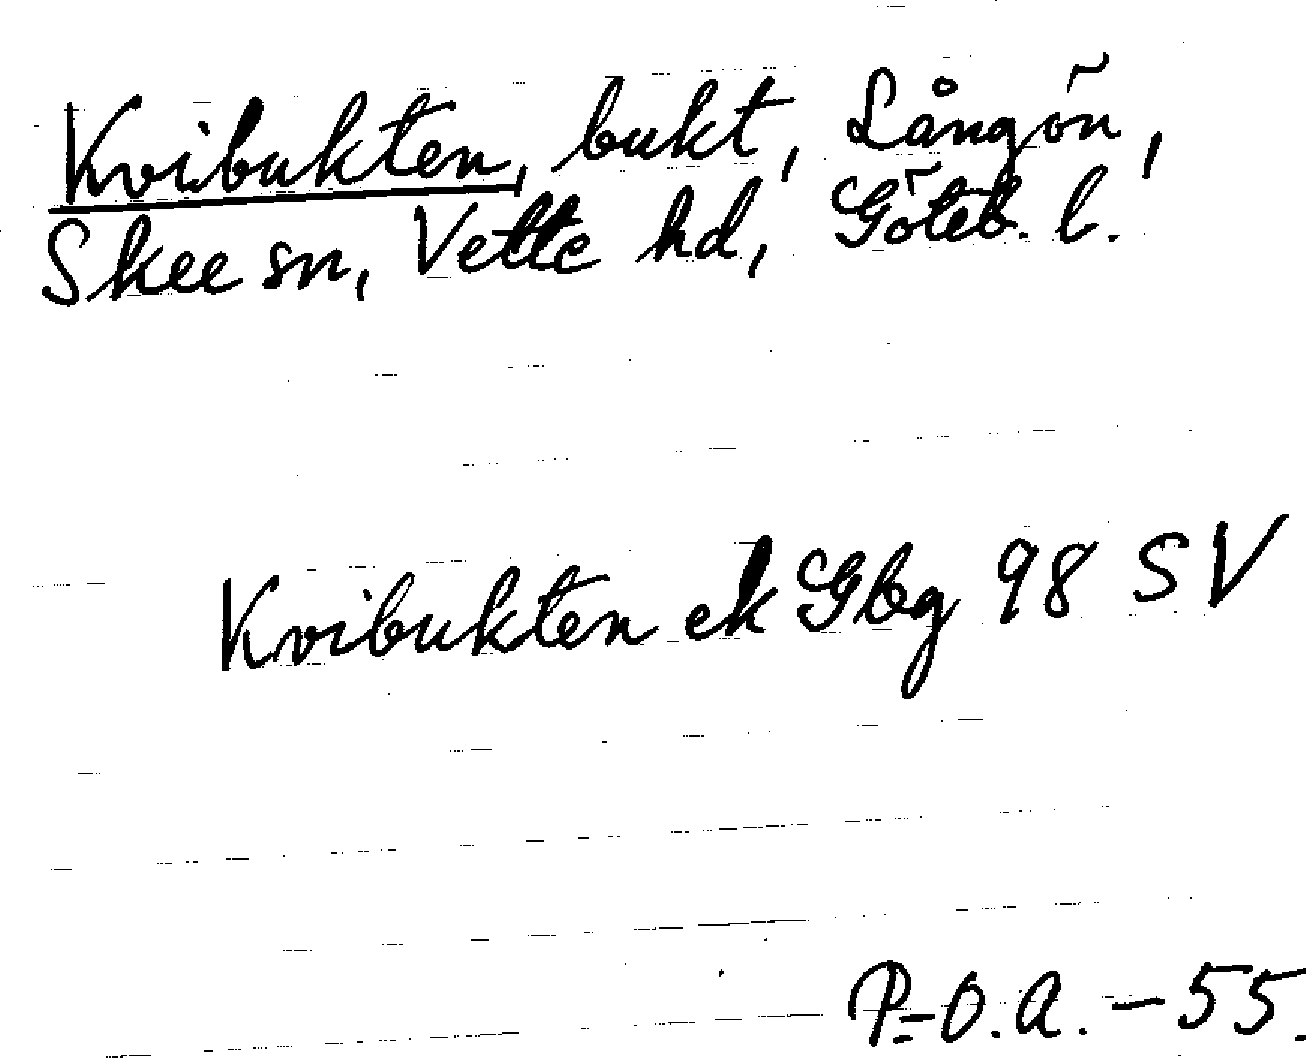 Kvibukten, bukt, Långön,
Skee sn, Vette hd, Göteb. l.
Kvibukten ek Gbg 98 SV
P.-O.A. - 55.